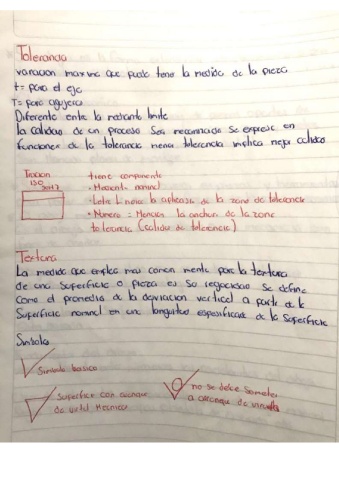 Tolerancia
variacion maxima que puede tener la medida de la pieza
t= para el eje
T= para agujero
Diferente entre la medida limite
la calidad de un proceso sea mecanizado se expresa en
funciones de la tolerancia menor tolerencia implica mejor calidad
Tracion
ISO
tiene componente
• Medida nominal
• Letra indica la de la zona de tolerancia
• Numero = Mencion la anchura de la zona
tolerancia (calidad de tolerencia)
Textura
La medida que emplea mas comun mente para la textura
de una Superficie o pieza es Su rugosidad Se define
como el promedio de la desviacion vertical a partir de la
Superficie nominal en una longitud especificada de la Superficie
Simbolos
Simbolo basico
Superficie con
de util Mecanico
no se debe Someter
a arranque de viruta